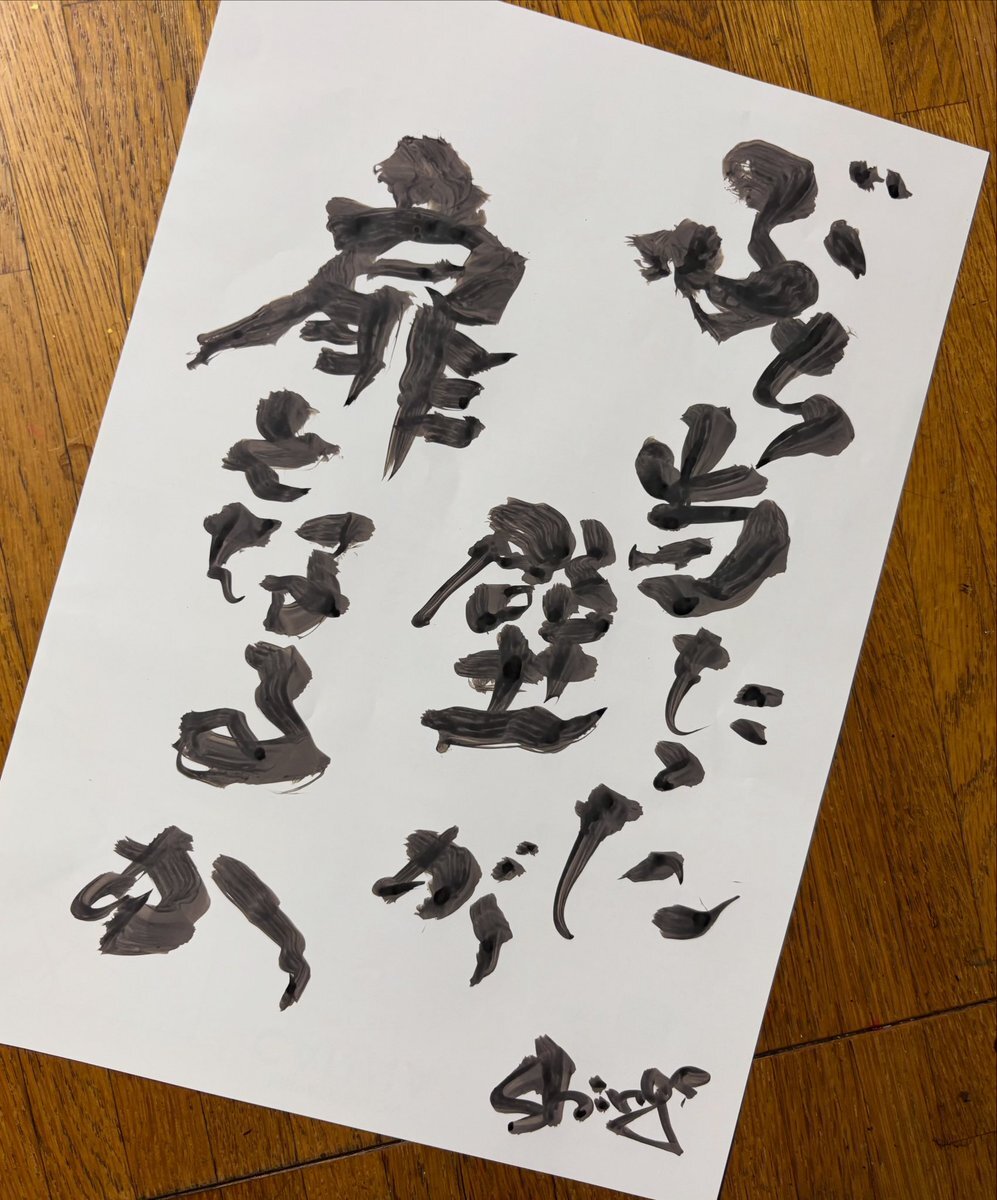 ぶち当たった
壁が
扉となるか
Shingo